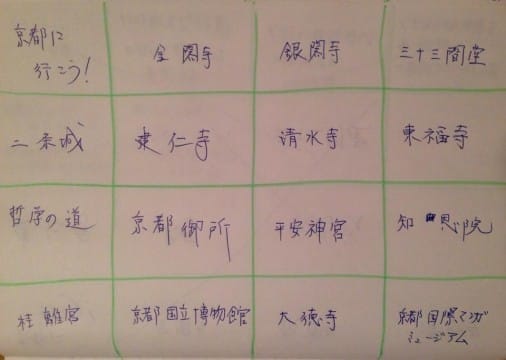 京都に
行こう!
金閣寺
銀閣寺
三十三間堂
二条城
建仁寺
清水寺
東福寺
哲学の道
京都御所
平安神宮
知恩院
桂離宮
京都国立博物館
大徳寺
京都国際マンガ
ミュージアム